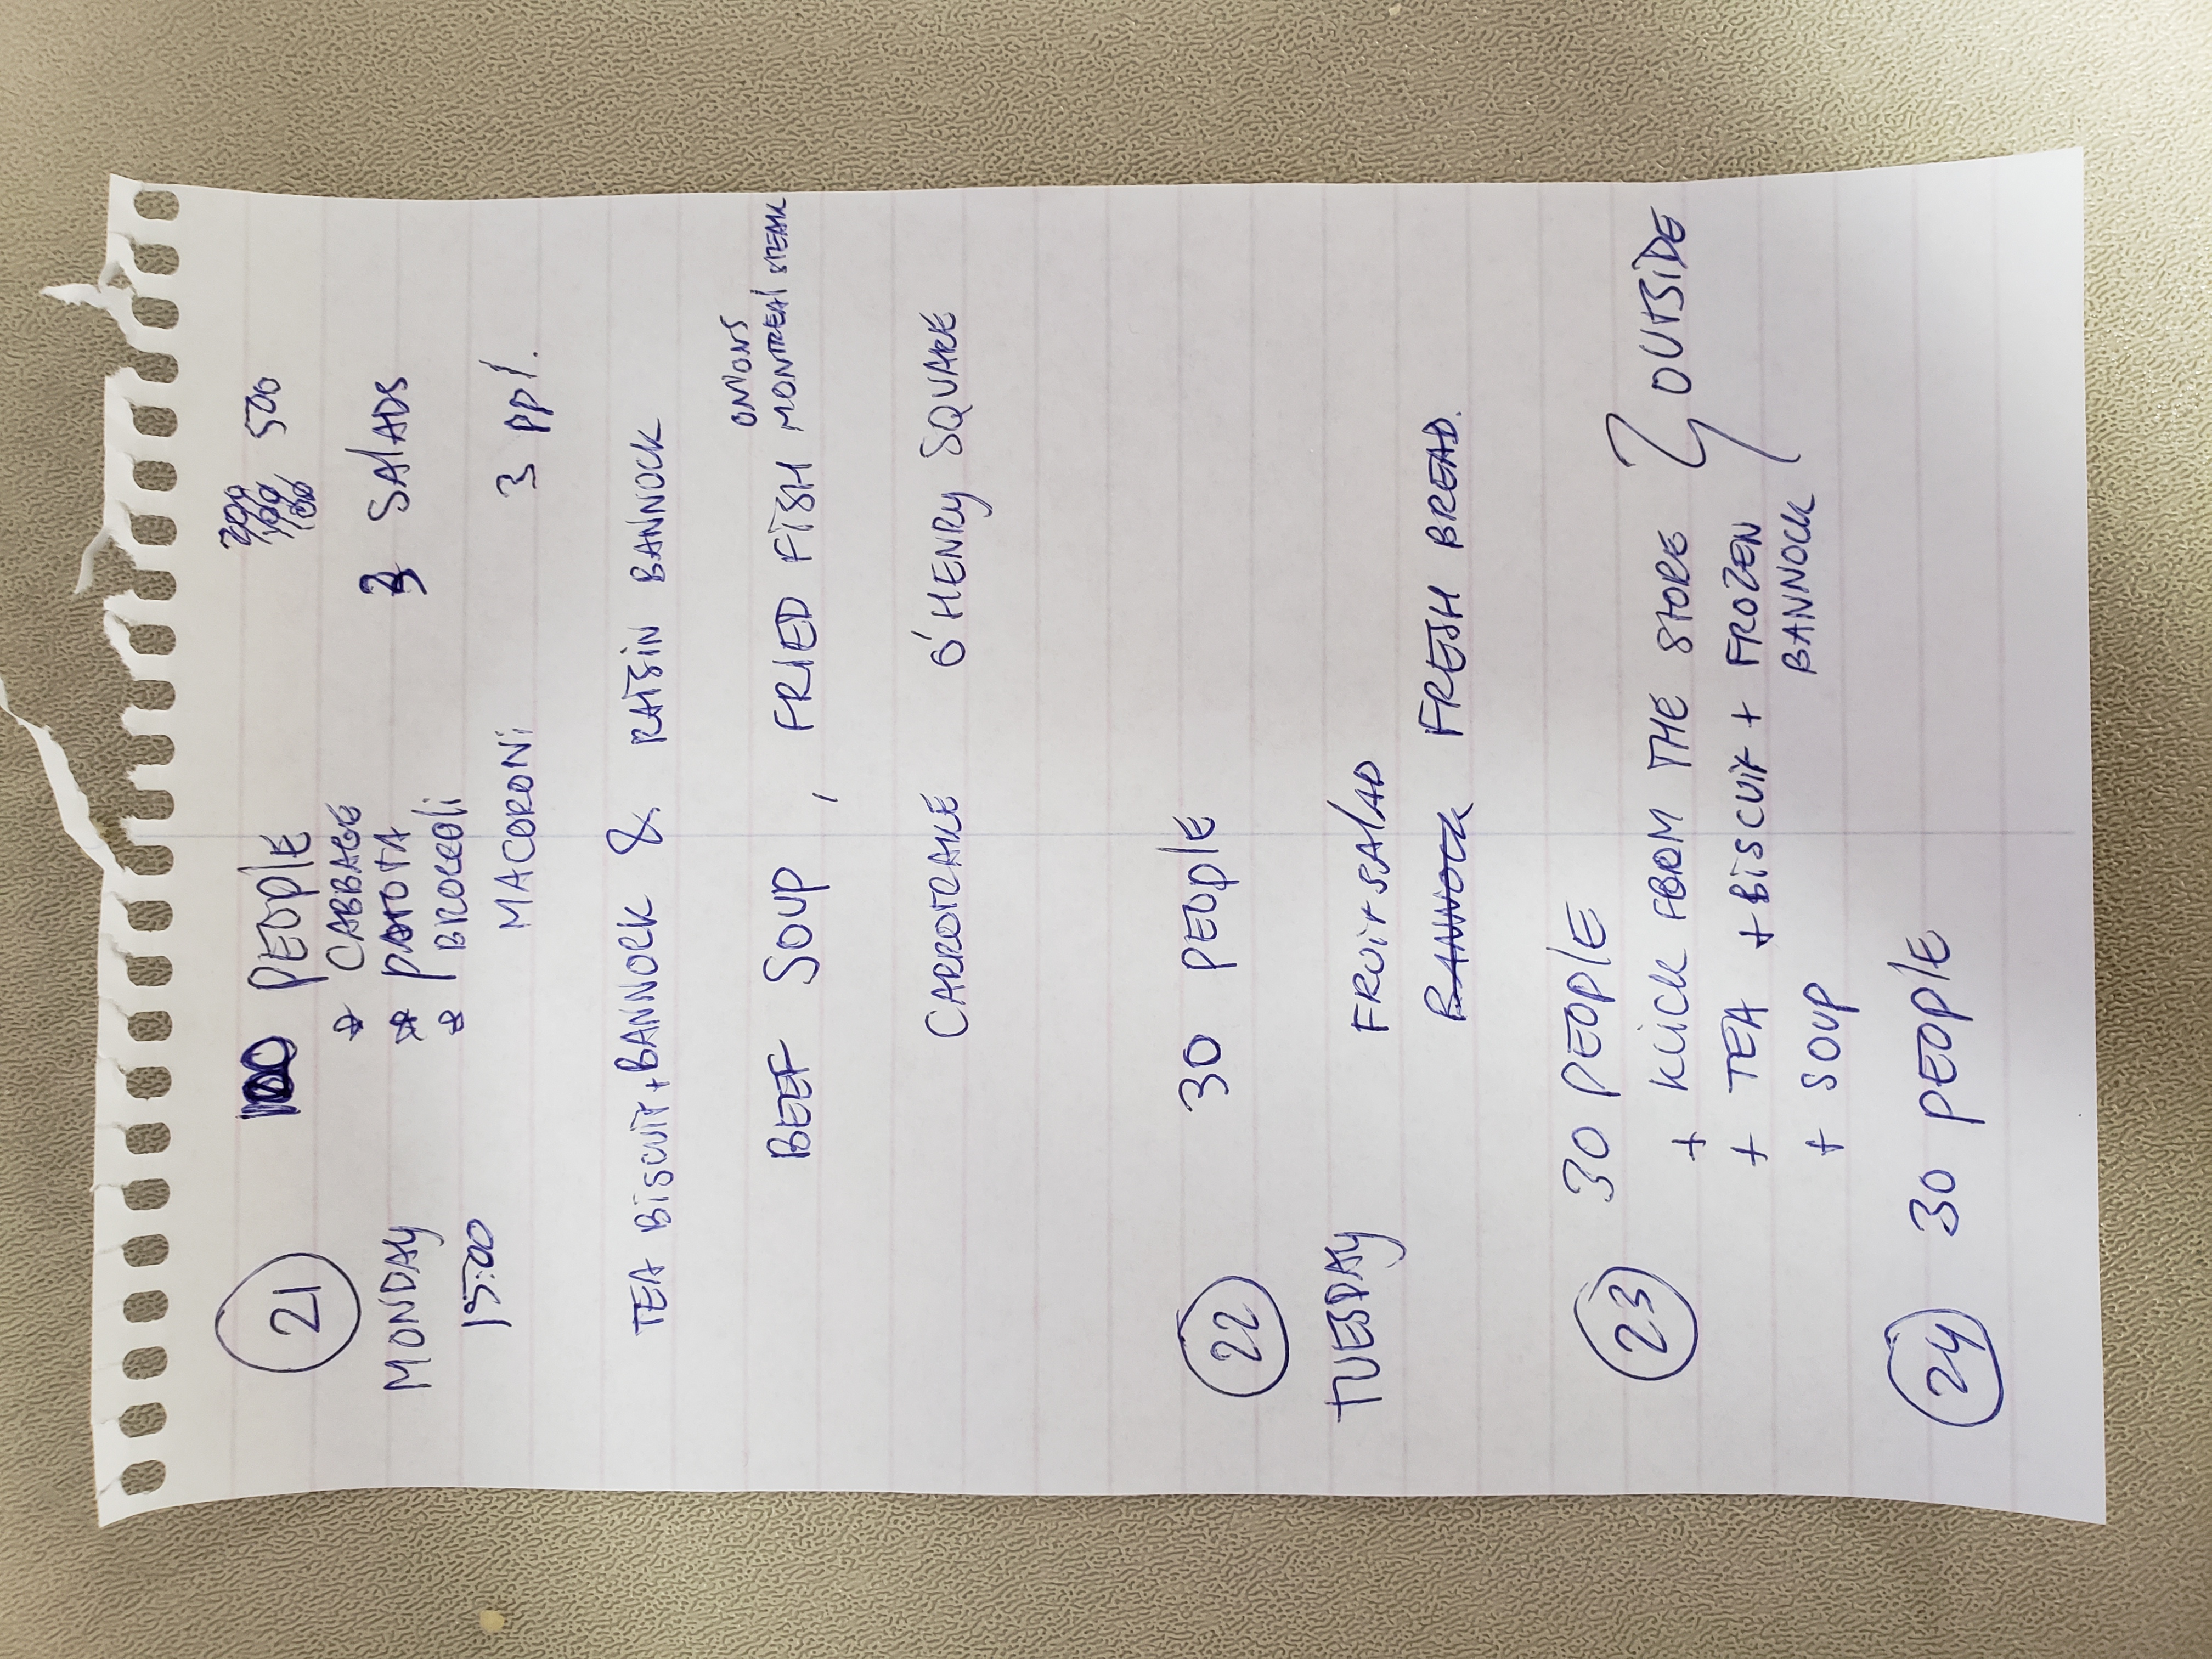 21 100 PEOPLE 500
MONDAY * CABBAGE 3 SALADS
15:00 * POTOTA
* BROCOLI
MACORONI 3 ppl.
TEA BISCUIT + BANNOCK & RAISIN BANNOCK
ONIONS
BEEF SOUP, FRIED FISH MONTREAL STEAK
CARROTCAKE O'HENRY SQUARE
22 30 PEOPLE
TUESDAY FRUIT SALAD
BANNOCK FRESH BREAD.
23 30 PEOPLE
+ KLICK FROM THE STORE
+ TEA + BISCUIT + FROZEN BANNOCK OUTSIDE
+ SOUP
24 30 PEOPLE